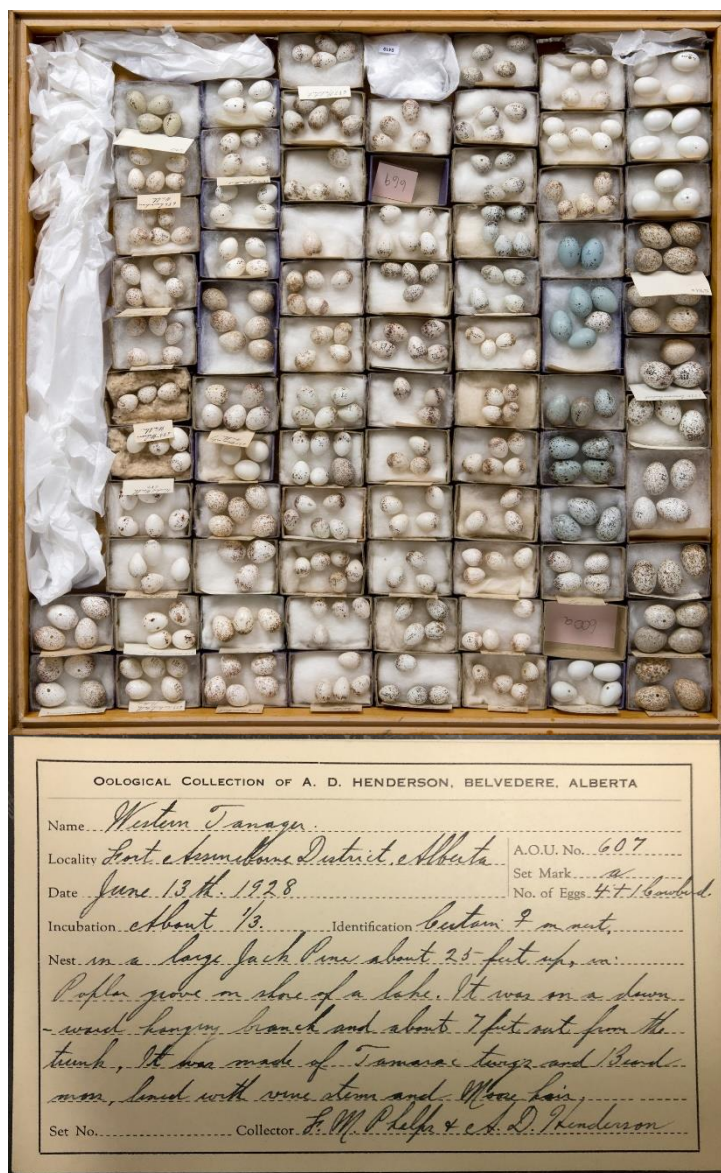 669
600a
OOLOGICAL COLLECTION OF A. D. HENDERSON, BELVEDERE, ALBERTA
Name Western Tanager.
Locality Fort Assiniboine District, Alberta
A.O.U. No. 607
Set Mark a
Date June 13th. 1928
No. of Eggs 4 + 1 Cowbird.
Incubation About 1/3. Identification Certain ♀ on nest.
Nest in a large Jack Pine about 25 feet up, in
Poplar grove on shore of a lake. It was on a down
-ward hanging branch and about 7 feet out from the
trunk. It was made of Tamarac twigs and Beard
moss, lined with vine stems and Moose hair.
Set No. Collector F. M. Phelps & A. D. Henderson